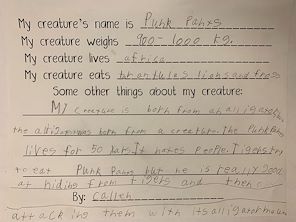 My creature's name is Punk Panxs
My creature weighs 900-1000 Kg.
My creature lives africa
My creature eats tarantulas lions and frogs
Some other things about my creature:
My creature is both from an alligator
the alligator was both from a creature. the Punk Panxs
lives for 50 years. It hates people. Tigers try
to eat Punk Panxs but he is really good
at hiding from tigers and then
By: Callen
attacking them with its alligator mouth